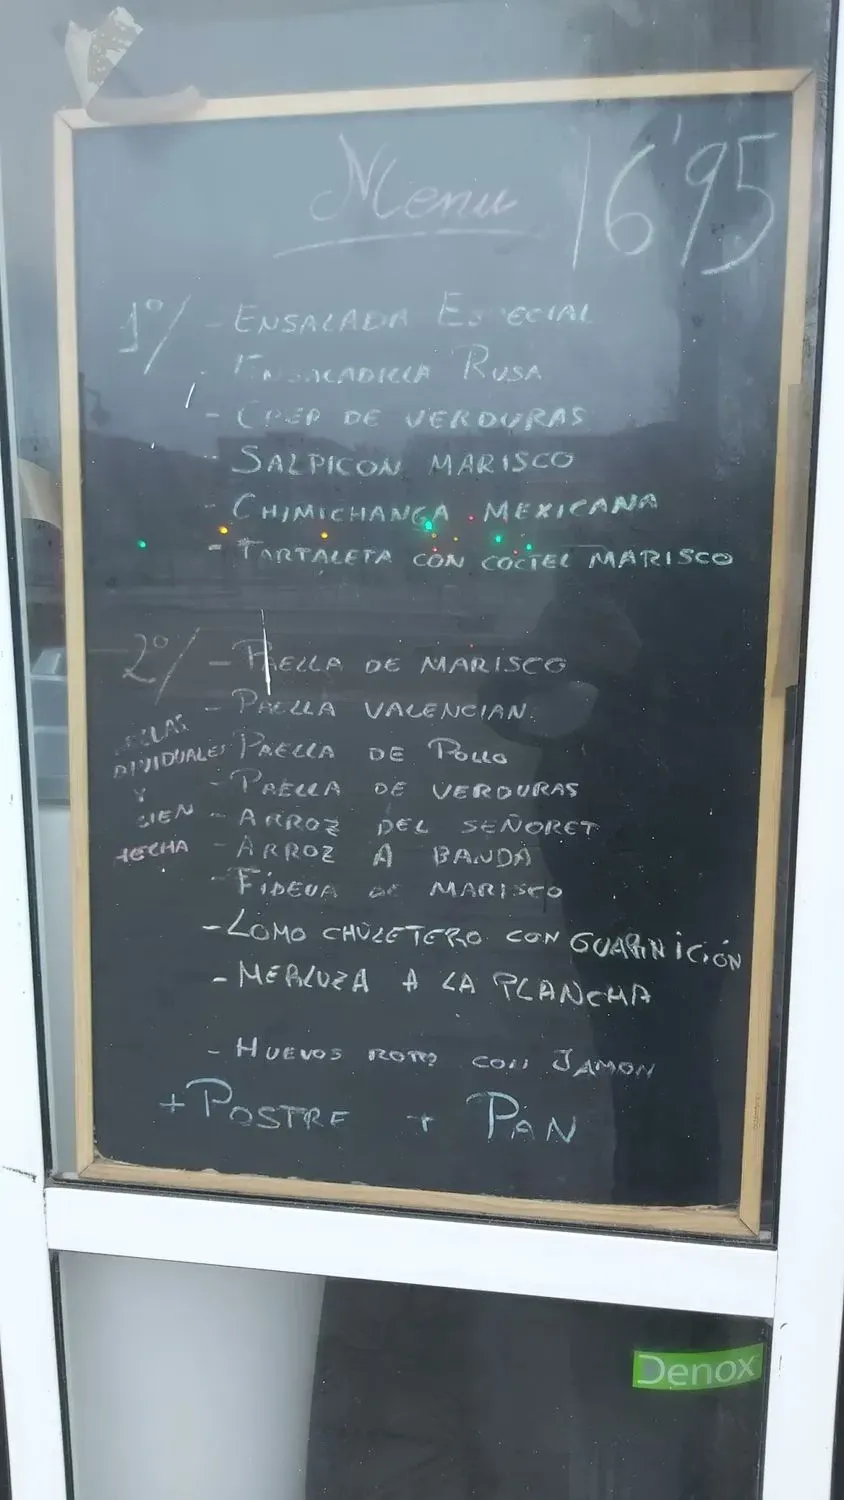 Menu 16'95
1º/ - ENSALADA ESPECIAL
- ENSALADILLA RUSA
- CREP DE VERDURAS
- SALPICON MARISCO
- CHIMICHANGA MEXICANA
- TARTALETA CON COCTEL MARISCO
2º/ - PAELLA DE MARISCO
- PAELLA VALENCIAN
PAELLA DE POLLO
- PAELLA DE VERDURAS
- ARROZ DEL SEÑORET
- ARROZ A BANDA
- FIDEUA DE MARISCO
- LOMO CHULETERO CON GUARNICIÓN
- MERLUZA A LA PLANCHA
- HUEVOS ROTO CON JAMON
+ POSTRE + PAN
DIVIDUALES
Y
BIEN
HECHA
Denox